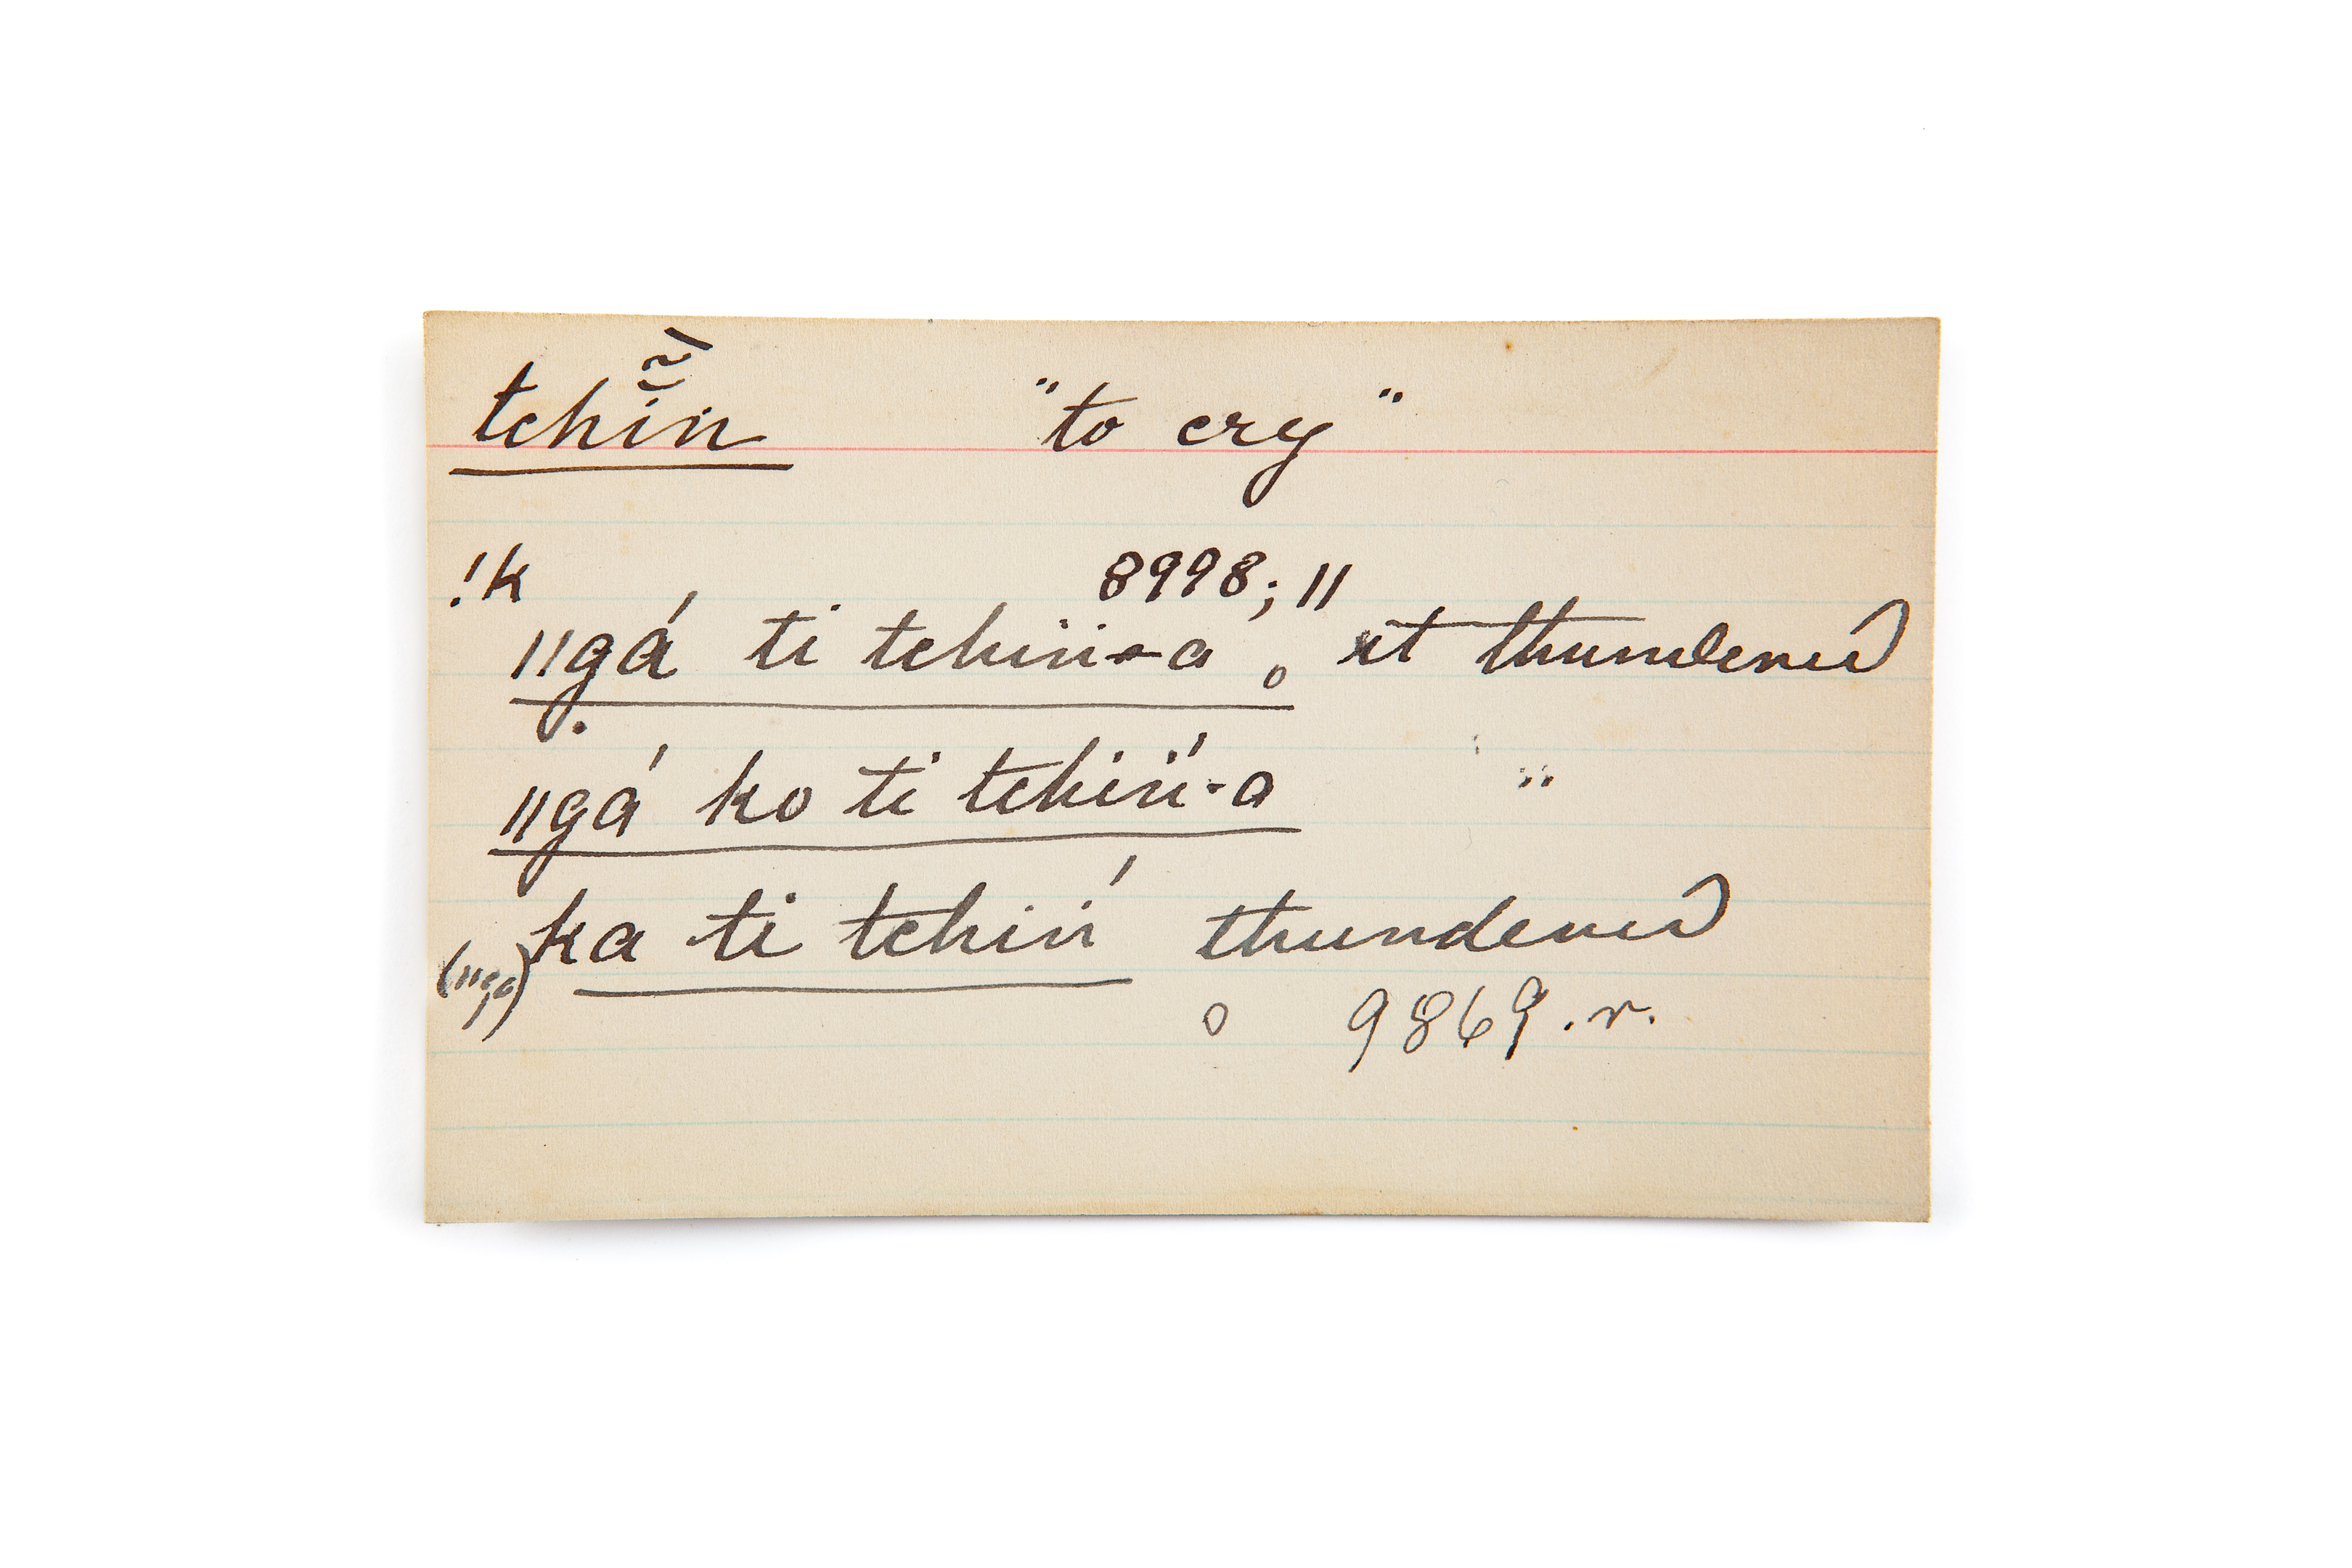 tchĩ̆́n "to cry"
!k 8998; 11
ǁgá ti tchiń-a, it thundered
ǁgá ko ti tchiń-a "
(ǁga) ka ti tchiń thundered
9869.r.